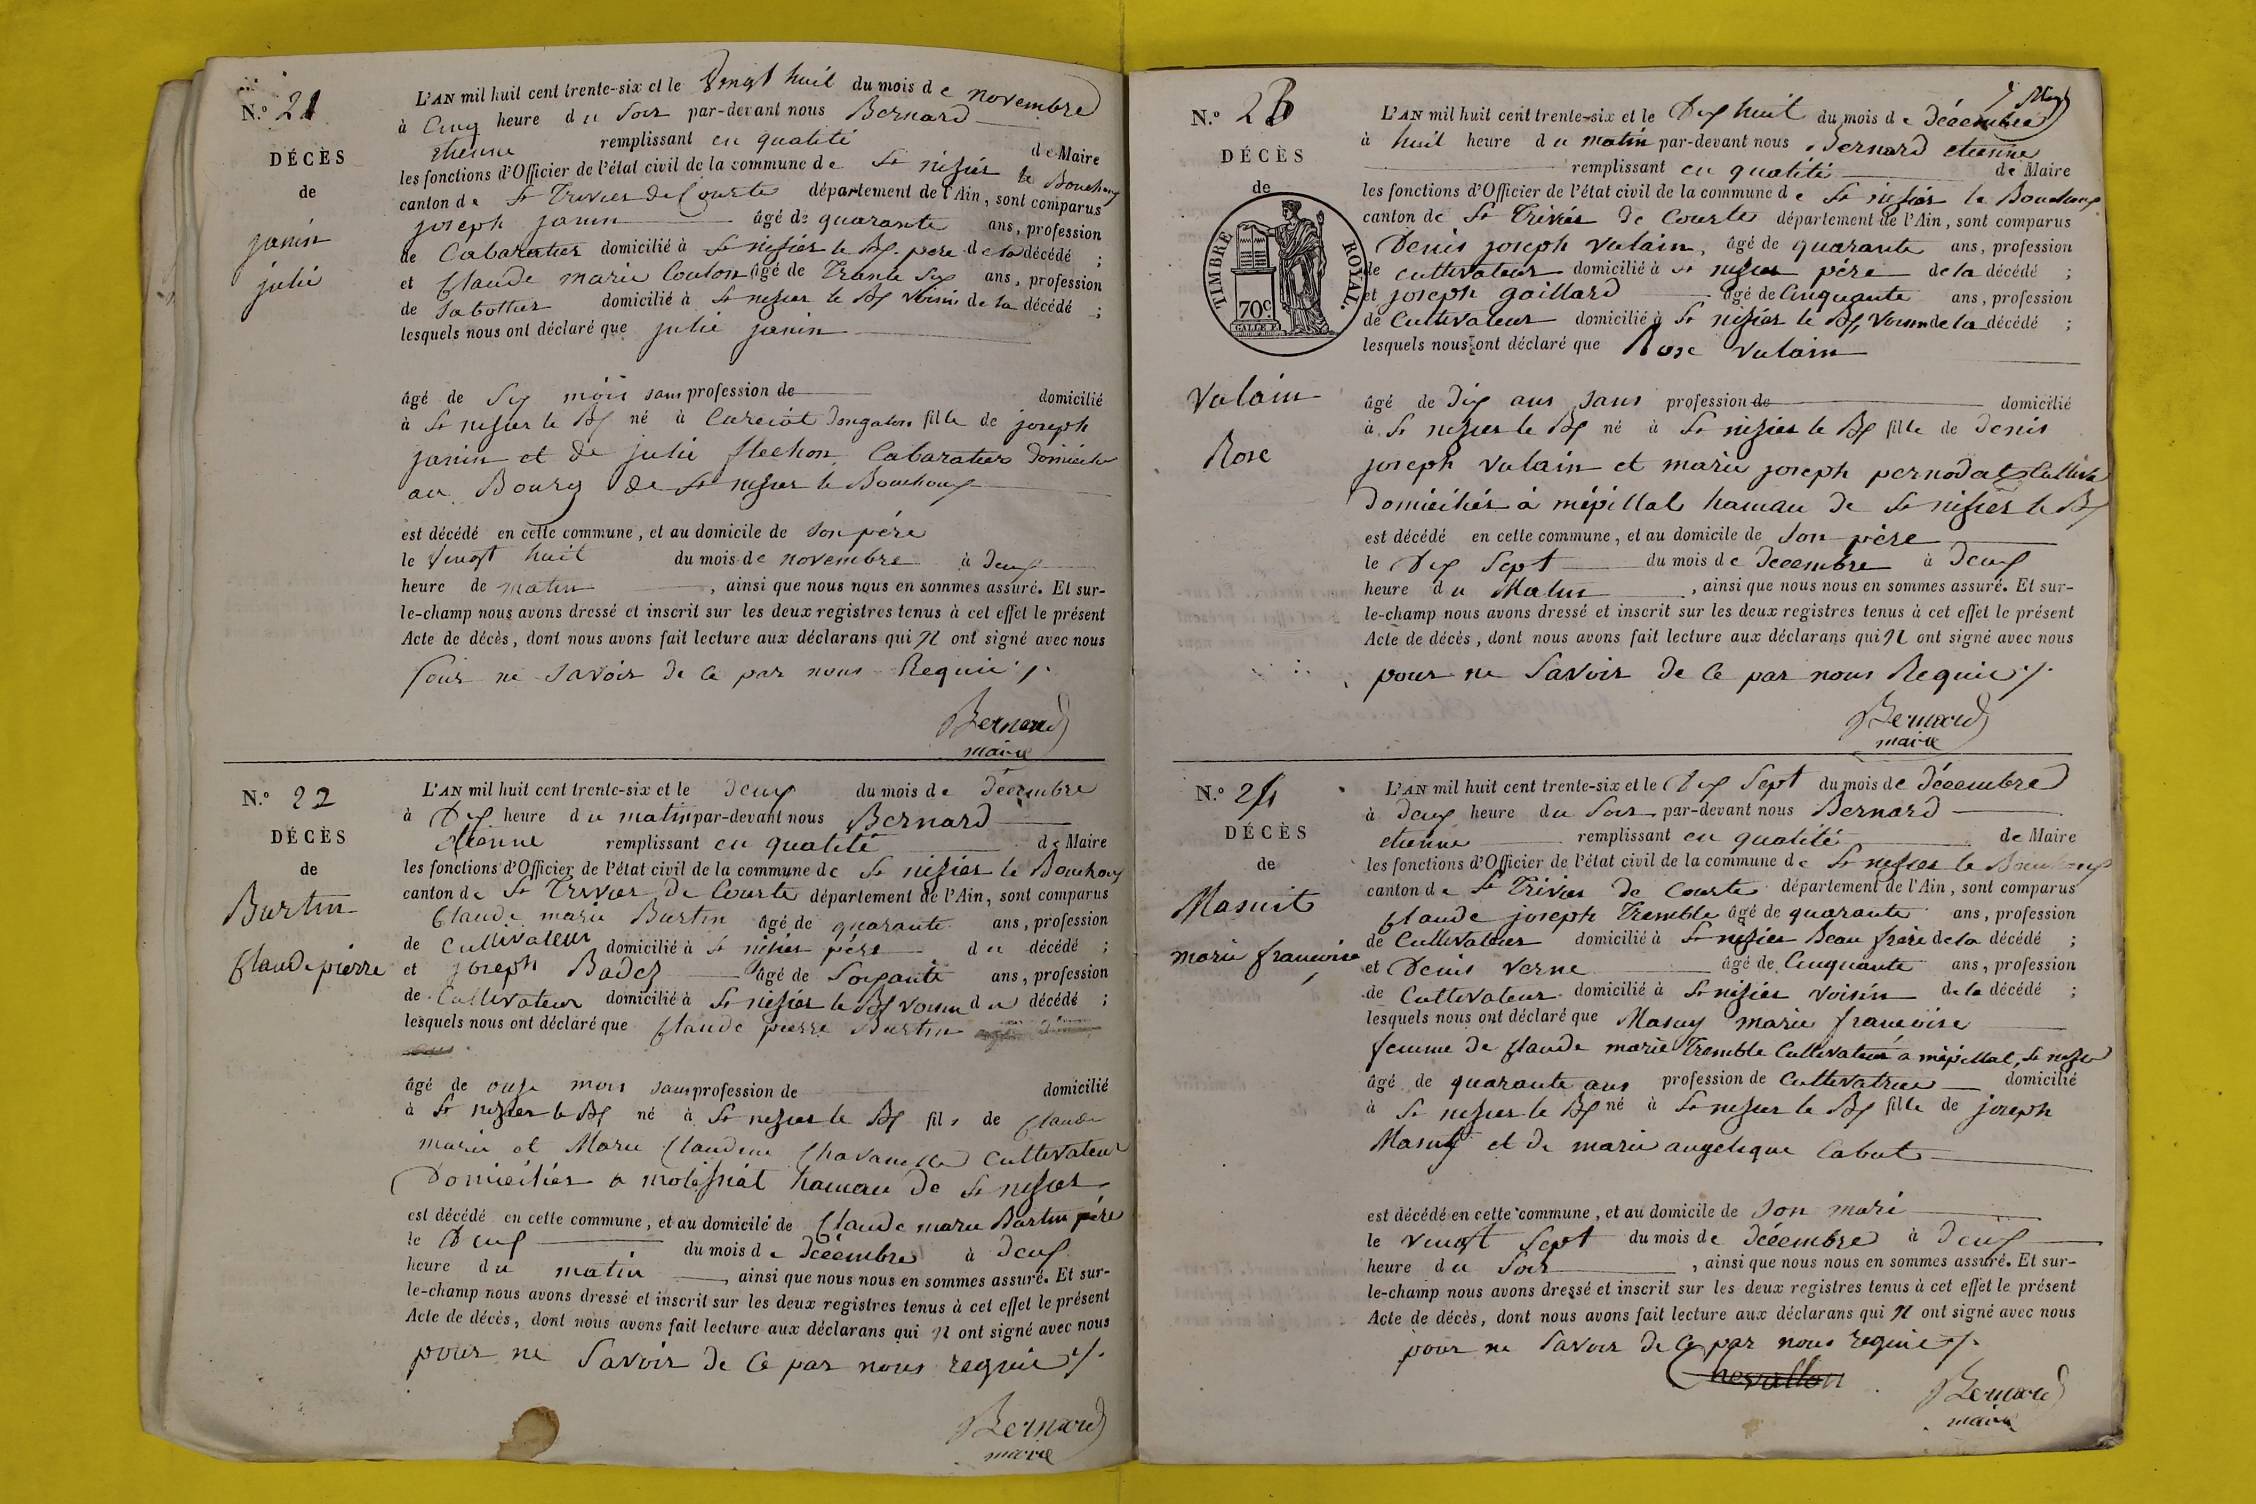 N.° 21
DÉCÈS
de
janin
julié
L'AN mil huit cent trente-six et le Vingt huit du mois de novembre
à Cinq heure du Soir par-devant nous Bernard
etienne remplissant en qualité de Maire
les fonctions d'Officier de l'état civil de la commune de St nisiés le Bouchoux
canton de St Triviés de Courte département de l'Ain, sont comparus
joseph janin âgé de quarante ans, profession
de Cabaratier domicilié à St nisiés le Bx. pere de la décédé ;
et Claude marie Coulon âgé de Trante Six ans, profession
de Sabottier domicilié à St nisier le Bx Voisin de la décédé ;
lesquels nous ont déclaré que julié janin
âgé de Six mois sans profession de domicilié
à St nisier le Bx né à Curciat Dongalon fille de joseph
janin et de julié flechon Cabaratier Domicilié
au Bourg de St nisier le Bouchoux
est décédé en cette commune, et au domicile de Son pére
le Vingt huit du mois de novembre à Deux
heure de matin , ainsi que nous nous en sommes assuré. Et sur-
le-champ nous avons dressé et inscrit sur les deux registres tenus à cet effet le présent
Acte de décès, dont nous avons fait lecture aux déclarans qui N ont signé avec nous
pour ne Savoir de Ce par nous Requie ./.
Bernard
maire
N.° 22
DÉCÈS
de
Burtin
Claude pierre
L'AN mil huit cent trente-six et le Deux du mois de Décembre
à Dix heure du matin par-devant nous Bernard
Etienne remplissant en qualité de Maire
les fonctions d'Officier de l'état civil de la commune de St nisiés le Bouchoux
canton de St Trivier de Courte département de l'Ain, sont comparus
Claude marie Burtin âgé de quarante ans, profession
de Cultivateur domicilié à St nisiés pére du décédé ;
et joseph Badez âgé de Soixante ans, profession
de Cultivateur domicilié à St nisiés le Bx voisin du décédé ;
lesquels nous ont déclaré que Claude pierre Burtin
âgé de onze mois sans profession de domicilié
à St nisier le Bx né à St nisier le Bx fils de Claude
marie et Marie Claudine Chavanelle Cultivateur
Domiciliés a molésiat hameau de St nisier
est décédé en cette commune, et au domicile de Claude marie Burtin pére
le Deux du mois de Décembre à Deux
heure du matin , ainsi que nous nous en sommes assuré. Et sur-
le-champ nous avons dressé et inscrit sur les deux registres tenus à cet effet le présent
Acte de décès, dont nous avons fait lecture aux déclarans qui N ont signé avec nous
pour ne Savoir de Ce par nous requie ./.
Bernard
maire
N.° 23
DÉCÈS
de
TIMBRE ROYAL.
70c
Vulain
Rose
L'AN mil huit cent trente-six et le Dix huit du mois de Décembre
à huit heure du matin par-devant nous Bernard etienne
remplissant en qualité de Maire
les fonctions d'Officier de l'état civil de la commune de St nisiés le Bouchoux
canton de St Triviés de Courte département de l'Ain, sont comparus
Denis joseph Vulain, âgé de quarante ans, profession
de cultivateur domicilié à St nisier pére de la décédé ;
et joseph gaillard âgé de Cinquante ans, profession
de Cultivateur domicilié à St nisiés le Bx, Voisin de la décédé ;
lesquels nous ont déclaré que Rose Vulain
âgé de Dix ans Sans profession de domicilié
à St nisier le Bx né à St nisiés le Bx fille de Denis
joseph Vulain et marie joseph pernodat Cultiva
Domiciliés à mépillat hamau de St nisiés le Bx
est décédé en cette commune, et au domicile de Son pére
le Dix Sept du mois de Décembre à Deux
heure du Matin , ainsi que nous nous en sommes assuré. Et sur-
le-champ nous avons dressé et inscrit sur les deux registres tenus à cet effet le présent
Acte de décès, dont nous avons fait lecture aux déclarans qui N ont signé avec nous
pour ne Savoir de Ce par nous Requie ./.
Bernard
maire
N.° 24
DÉCÈS
de
Masuit
marie francoise
L'AN mil huit cent trente-six et le Dix Sept du mois de Décembre
à Deux heure du Soir par-devant nous Bernard
etienne remplissant en qualité de Maire
les fonctions d'Officier de l'état civil de la commune de St nisiés le Bouchoux
canton de St Triviés de Courte département de l'Ain, sont comparus
Claude joseph Tremble âgé de quarante ans, profession
de Cultivateur domicilié à St nisiés Beau frére de la décédé ;
et Denis Verne âgé de Cinquante ans, profession
de Cultivateur domicilié à St nisiés voisin de la décédé ;
lesquels nous ont déclaré que Masuy marie francoise
femme de Claude marie Tremble Cultivateur a mépillat, St nisier
âgé de quarante ans profession de Cultivatrice domicilié
à St nisier le Bx né à St nisier le Bx fille de joseph
Masuy et de marie angelique Cabut
est décédé en cette commune, et au domicile de Son mari
le Vingt Sept du mois de Décembre à Deux
heure du Soir , ainsi que nous nous en sommes assuré. Et sur-
le-champ nous avons dressé et inscrit sur les deux registres tenus à cet effet le présent
Acte de décès, dont nous avons fait lecture aux déclarans qui N ont signé avec nous
pour ne Savoir de Ce par nous requie ./.
Chevallon
Bernard
maire